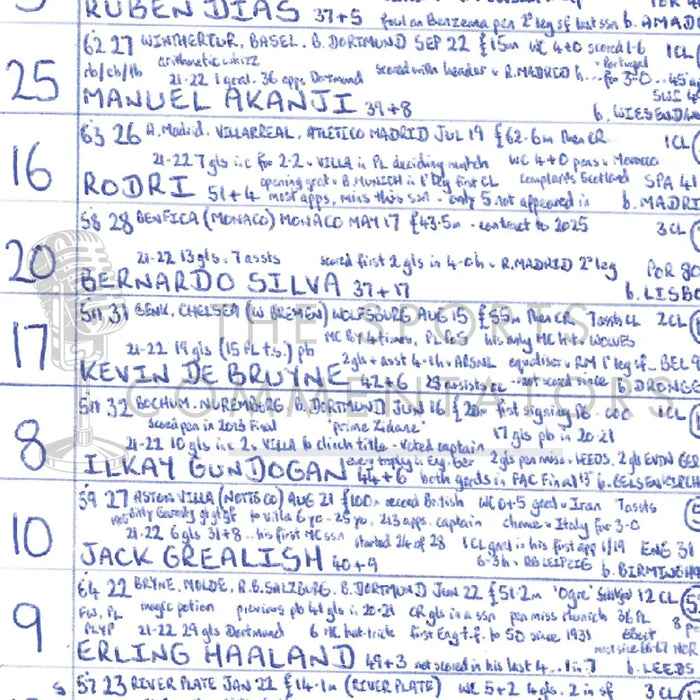 RUBEN DIAS 37+5 foul on Benzema pen 2nd leg sf last ssn b. AMAD
25
62 27 WINTHERTUR, BASEL, B. DORTMUND SEP 22 £15m WC 4+0 scored 1-6 1CL
rb/cb/lb arithmetic whizz Portugal
21-22 1 goal. 36 apps Dortmund scored with header v R.MADRID h for 3-0
MANUEL AKANJI 39+8 b. WIESENDAN
16
63 26 A. Madrid, VILLARREAL, ATLETICO MADRID JUL 19 £62.6m then CR 1CL
21-22 7 gls inc for 2-2 v VILLA in PL deciding match WC 4+0 pens v Morocco
opening goal v B.MUNICH in 1st leg first CL complaints Scotland SPA 41
RODRI 51+4 most apps, mins this ssn - only 5 not appeared in b. MADRI
20
58 28 BENFICA (MONACO) MONACO MAY 17 £43.5m - contract to 2025 3CL
21-22 13 gls. 7 assts scored first 2 gls in 4-0 h v R.MADRID 2nd leg POR 80
BERNARDO SILVA 37+17 b. LISBO
17
5'11 31 GENK, CHELSEA (W BREMEN) WOLFSBURG AUG 15 £55m then CR 7assts CL 2CL
21-22 19 gls (15 PL t.s.) pb MC POY 4 times, PL POS his only MC h-t v WOLVES
2gls + asst 4-1 h v ARSNL equaliser v RM 1st leg sf BEL 9
KEVIN DE BRUYNE 42+6 28 assists CR - not scored since b DRONGE
8
5'11 32 BOCHUM, NUREMBERG B. DORTMUND JUN 16 £20m first signing PG 1CL
scored pen in 2013 Final "prime Zidane" 17 gls pb in 20-21
21-22 10 gls inc 2 v VILLA to clinch title - voted captain
every trophy in Eng. Ger 2 gls pen miss v LEEDS, 2 gls EVTN GER
ILKAY GUNDOGAN 44+6 both goals in FAC Final b. GELSENKIRCH
10
59 27 ASTON VILLA (NOTTS CO) AUG 21 £100m record British WC 0+5 goal v Iran 7assts
to villa 6 yo - 25 yo, 213 apps. captain chance v Italy for 3-0
21-22 6 gls 31+8 ...his first MC ssn started 24 of 28 1CL goal in his first app 1/19 ENG 31
JACK GREALISH 40+9 6-3 h v RB LEIPZIG b. BIRMINGH
9
64 22 BRYNE, MOLDE, R.B. SALZBURG, B. DORTMUND JUN 22 £51.2m 'Ogre' 12CL
FW, PL magic potion previous pb 41 gls in 20-21 CR gls in a ssn pen miss Munich 36 PL
PLYP 21-22 29 gls Dortmund 6 MC hat-tricks first Eng t.f. to 50 since 1931
ERLING HAALAND 49+3 not scored in his last 4 ... 1 in 7 b. LEEDS
57 23 RIVER PLATE JAN 22 £14.1m (RIVER PLATE) WC 5+2 4gls. 2 in sf 3CL
THE SPORTS
COMMENTATORS